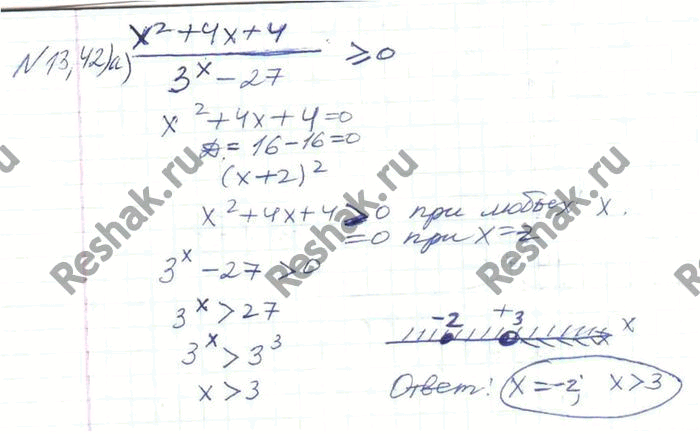 N13,42)а) x² + 4x + 4
3ˣ − 27
⩾ 0
x² + 4x + 4 = 0
D = 16 − 16 = 0
(x + 2)²
x² + 4x + 4 ⩾ 0 при любых x.
= 0 при x = 2
3ˣ − 27 > 0
3ˣ > 27
3ˣ > 3³
x > 3
−2 + 3 x
Ответ: x = −2; x > 3
Reshak.ru
Reshak.ru
Reshak.ru
Reshak.ru